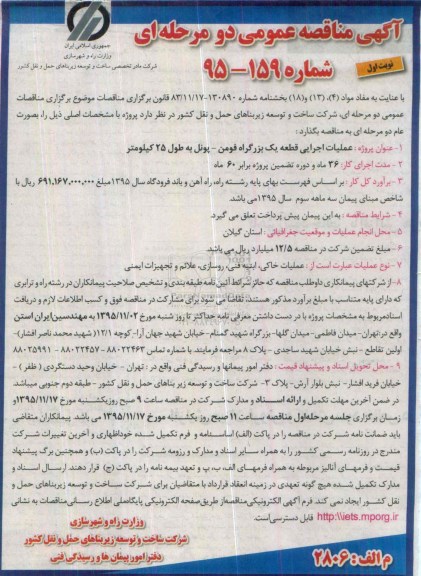 جمهوری اسلامی ایران
وزارت راه و شهرسازی
شرکت مادر تخصصی ساخت و توسعه زیربناهای حمل و نقل کشور
آگهی مناقصه عمومی دو مرحله ای
شماره ۱۵۹-۹۵
نوبت اول
با عنایت به مفاد مواد (۴)، (۱۳) و (۱۸) بخشنامه شماره ۱۳۰۸۹۰-۸۳/۱۱/۱۷ قانون برگزاری مناقصات موضوع برگزاری مناقصات
عمومی دو مرحله ای، شرکت ساخت و توسعه زیربناهای حمل و نقل کشور در نظر دارد پروژه با مشخصات اصلی ذیل را، بصورت
عام دو مرحله ای به مناقصه بگذارد:
۱- عنوان پروژه: عملیات اجرایی قطعه یک بزرگراه فومن - پونل به طول ۲۵ کیلومتر
۲- مدت اجرای کار: ۳۶ ماه و دوره تضمین پروژه برابر ۶۰ ماه
۳- برآورد کل کار: بر اساس فهرست بهای پایه رشته راه، راه آهن و باند فرودگاه سال ۱۳۹۵ مبلغ ۶۹۱,۱۶۷,۰۰۰,۰۰۰ ریال با
شاخص مبنای پیمان سه ماهه سوم سال ۱۳۹۵ می باشد.
۴- شرایط مناقصه: به این پیمان پیش پرداخت تعلق می گیرد.
۵- محل انجام عملیات و موقعیت جغرافیائی: استان گیلان
۶- مبلغ تضمین شرکت در مناقصه ۱۲/۵ میلیارد ریال می باشد.
۷- نوع عملیات عبارت است از: عملیات خاکی، ابنیه فنی، روسازی، علائم و تجهیزات ایمنی
۸- از شرکتهای پیمانکاری داوطلب مناقصه که حائز شرائط آئین نامه طبقه بندی و تشخیص صلاحیت پیمانکاران در رشته راه و ترابری
که دارای پایه متناسب با مبلغ برآورد مذکور هستند، تقاضا می شود برای مشارکت در مناقصه فوق و کسب اطلاعات لازم و دریافت
اسناد مربوط به مشخصات پروژه با در دست داشتن معرفی نامه حداکثر تا روز شنبه مورخ ۱۳۹۵/۱۱/۰۲ به مهندسین ایران استن
واقع در تهران- میدان فاطمی- میدان گلها- بزرگراه شهید گمنام- خیابان شهید جهان آرا- کوچه ۱۲/۱ (شهید محمد ناصر افشار)-
اولین تقاطع - نبش خیابان شهید ساجدی - پلاک ۸ مراجعه فرمایند. با شماره تماس ۸۸۰۲۲۴۶۳ - ۸۸۰۲۲۴۵۷ - ۸۸۰۲۵۹۹۱
۹- محل تحویل اسناد و پیشنهاد قیمت: دفتر امور پیمانها و رسیدگی فنی واقع در: تهران - خیابان وحید دستگردی (ظفر) -
خیابان فرید افشار- نبش بلوار آرش- پلاک ۳- شرکت ساخت و توسعه زیر بناهای حمل و نقل کشور - طبقه دوم جنوبی میباشد
در ضمن آخرین مهلت تکمیل و ارائه اسناد و مدارک شرکت در مناقصه ساعت ۹ صبح روز یکشنبه مورخ ۱۳۹۵/۱۱/۱۷ و
زمان برگزاری جلسه مرحله اول مناقصه ساعت ۱۱ صبح روز یکشنبه مورخ ۱۳۹۵/۱۱/۱۷ می باشد. پیمانکاران متقاضی
باید ضمانت نامه شرکت در مناقصه را در پاکت (الف) اساسنامه و فرم تکمیل شده خوداظهاری و آخرین تغییرات شرکت
مندرج در روزنامه رسمی کشور را به همراه سایر اسناد و مدارک و رزومه شرکت را در پاکت (ب) و همچنین برگ پیشنهاد
قیمت و فرمهای آنالیز مربوطه به همراه فرمهای الف، ب، پ و تعهد بیمه نامه را در پاکت (ج) قرار دهند ارسال اسناد و
مدارک تکمیل شده هیچ گونه تعهدی در زمینه انعقاد قرارداد با متقاضیان برای شرکت ساخت و توسعه زیربناهای حمل و
نقل کشور ایجاد نمی کند. فرم آگهی الکترونیکی مناقصه از طریق صفحه الکترونیکی پایگاه ملی اطلاع رسانی مناقصات به نشانی
http://iets.mporg.ir قابل دسترسی است.
وزارت راه و شهرسازی
شرکت ساخت و توسعه زیربناهای حمل و نقل کشور
دفتر امور پیمان ها و رسیدگی فنی
م الف: ۲۸۰۶